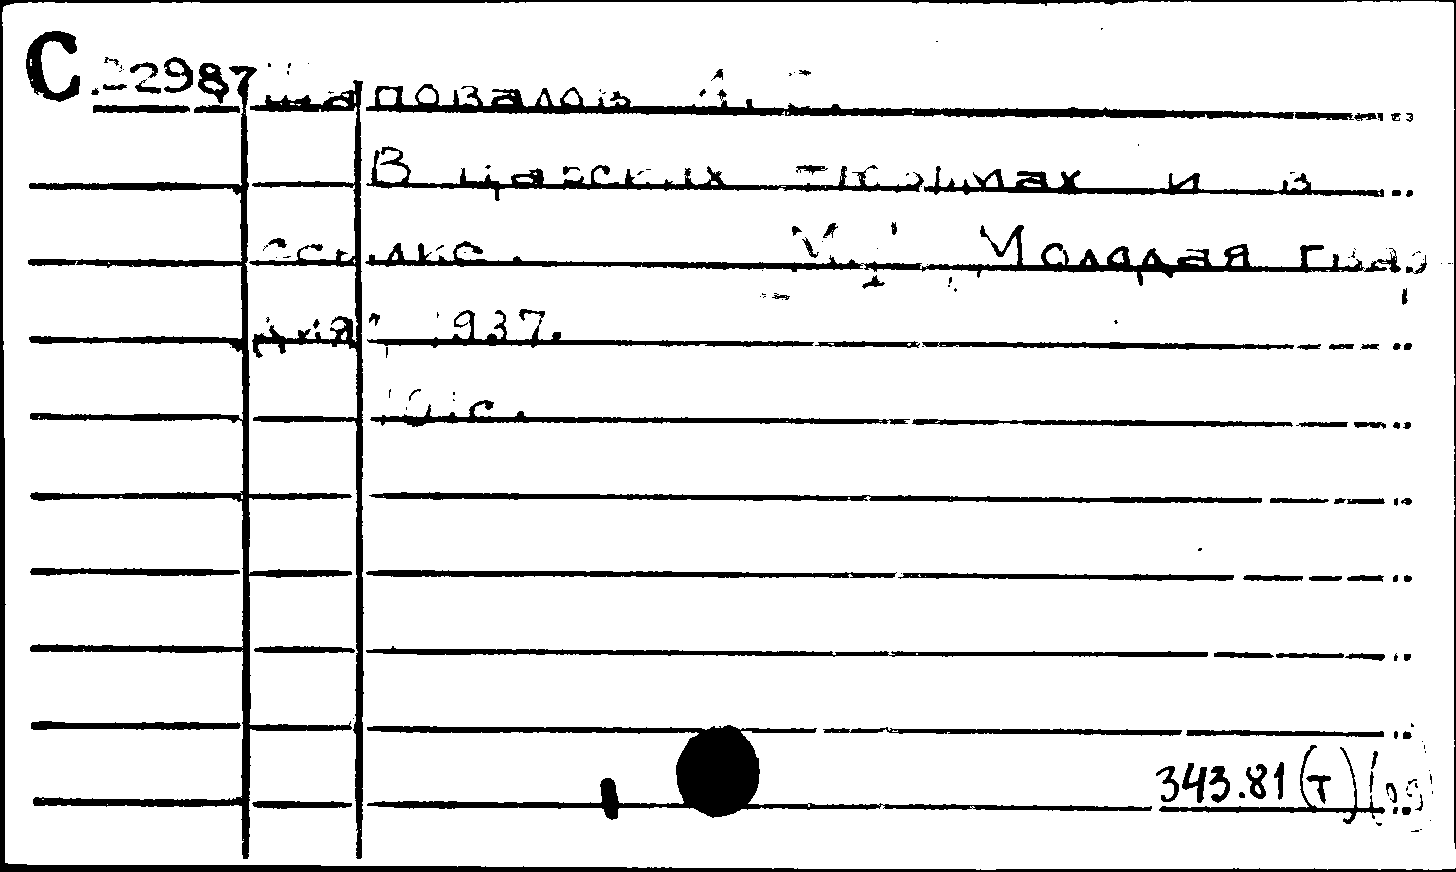 С.22987
Шаповалов А.
В царских тюрьмах и в
ссылке. М., „Молодая гвар
дия" 1937.
с.
343.81 (Т)